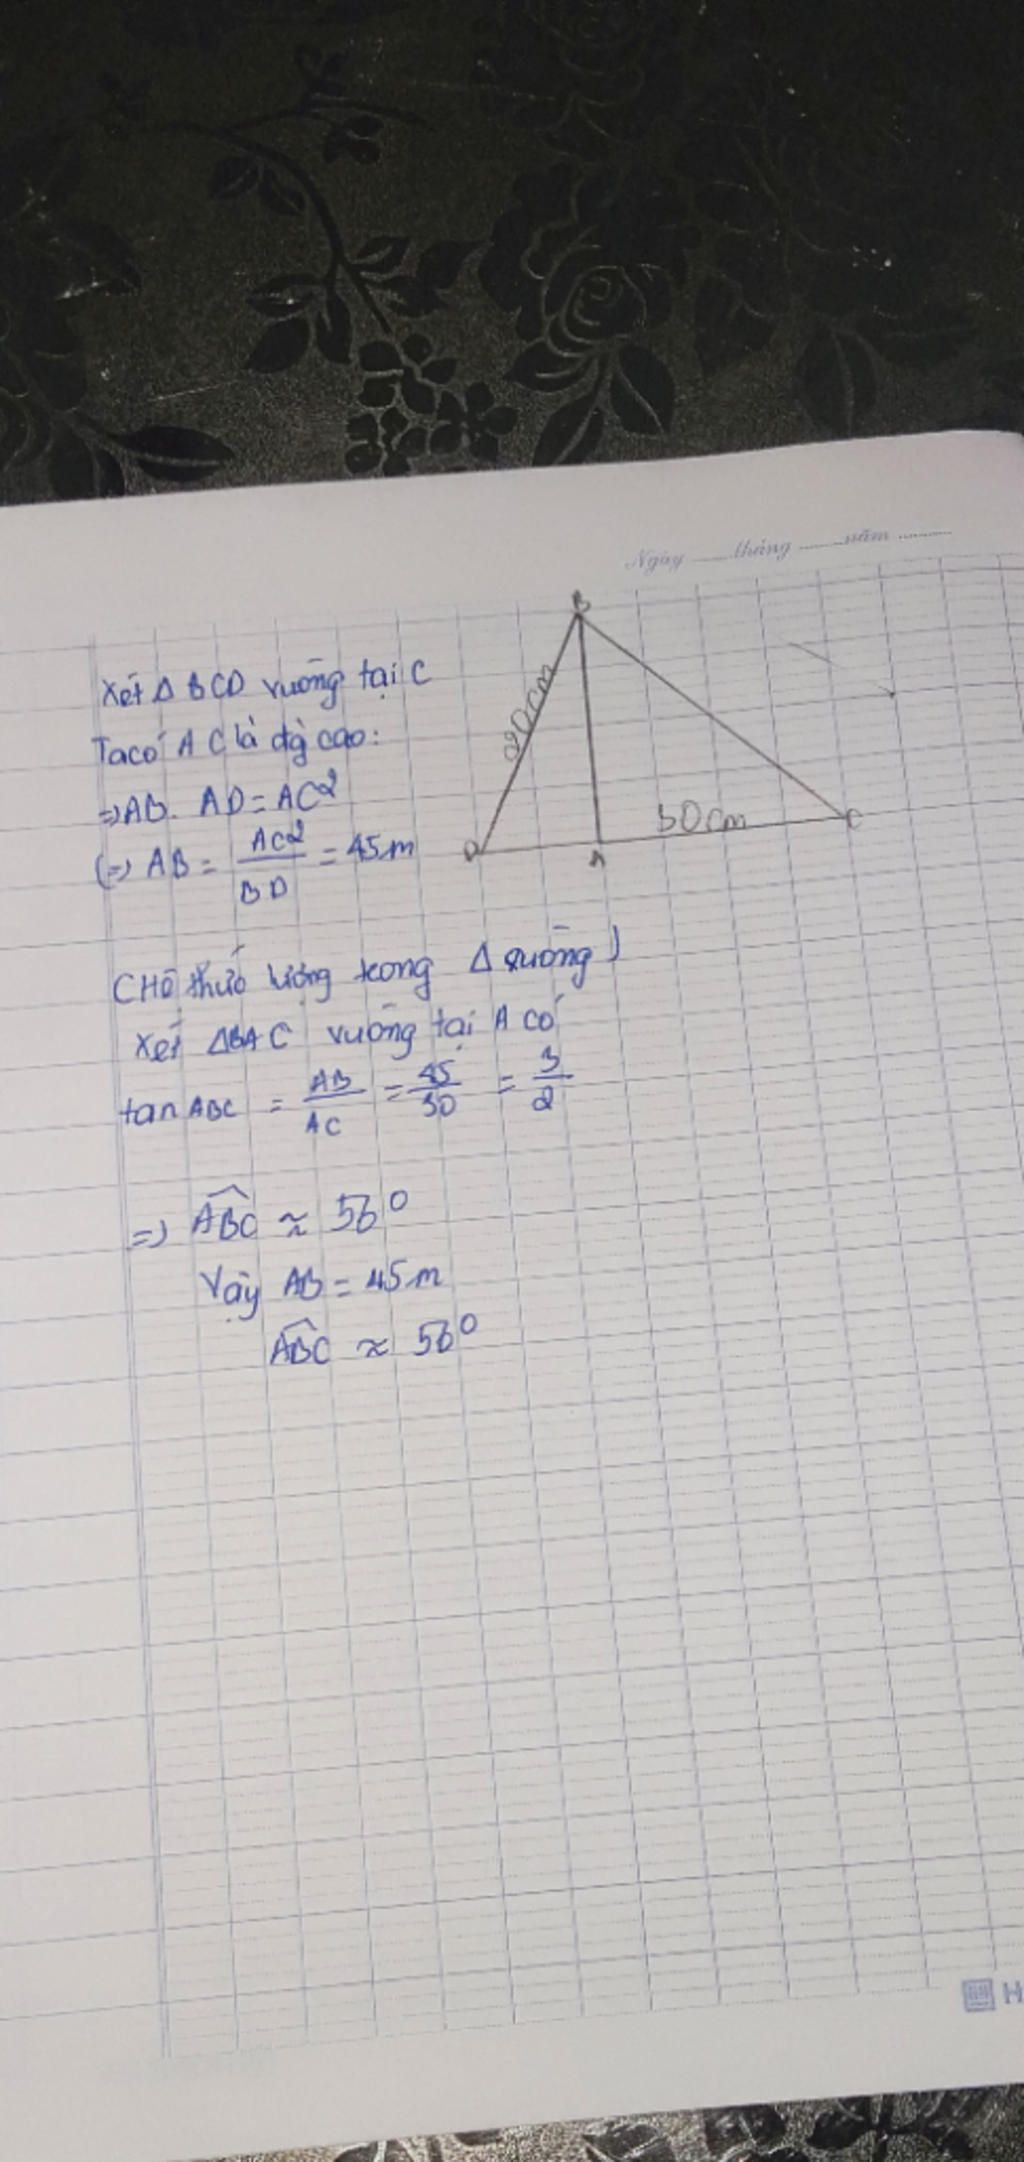 Ngày ......tháng ......năm ......
B
Xét Δ BCD vuông tại C
20cm
Ta có AC là đg cao:
=> AB. AD = AC²
30cm
C
D
A
(=) AB = AC²/BD = 45m
(Hệ thức lượng trong Δ vuông)
Xét ΔBAC vuông tại A có
tan ABC = AB/AC = 45/30 = 3/2
=> ABC ≈ 56°
Vậy AB = 45m
ABC ≈ 56°
H